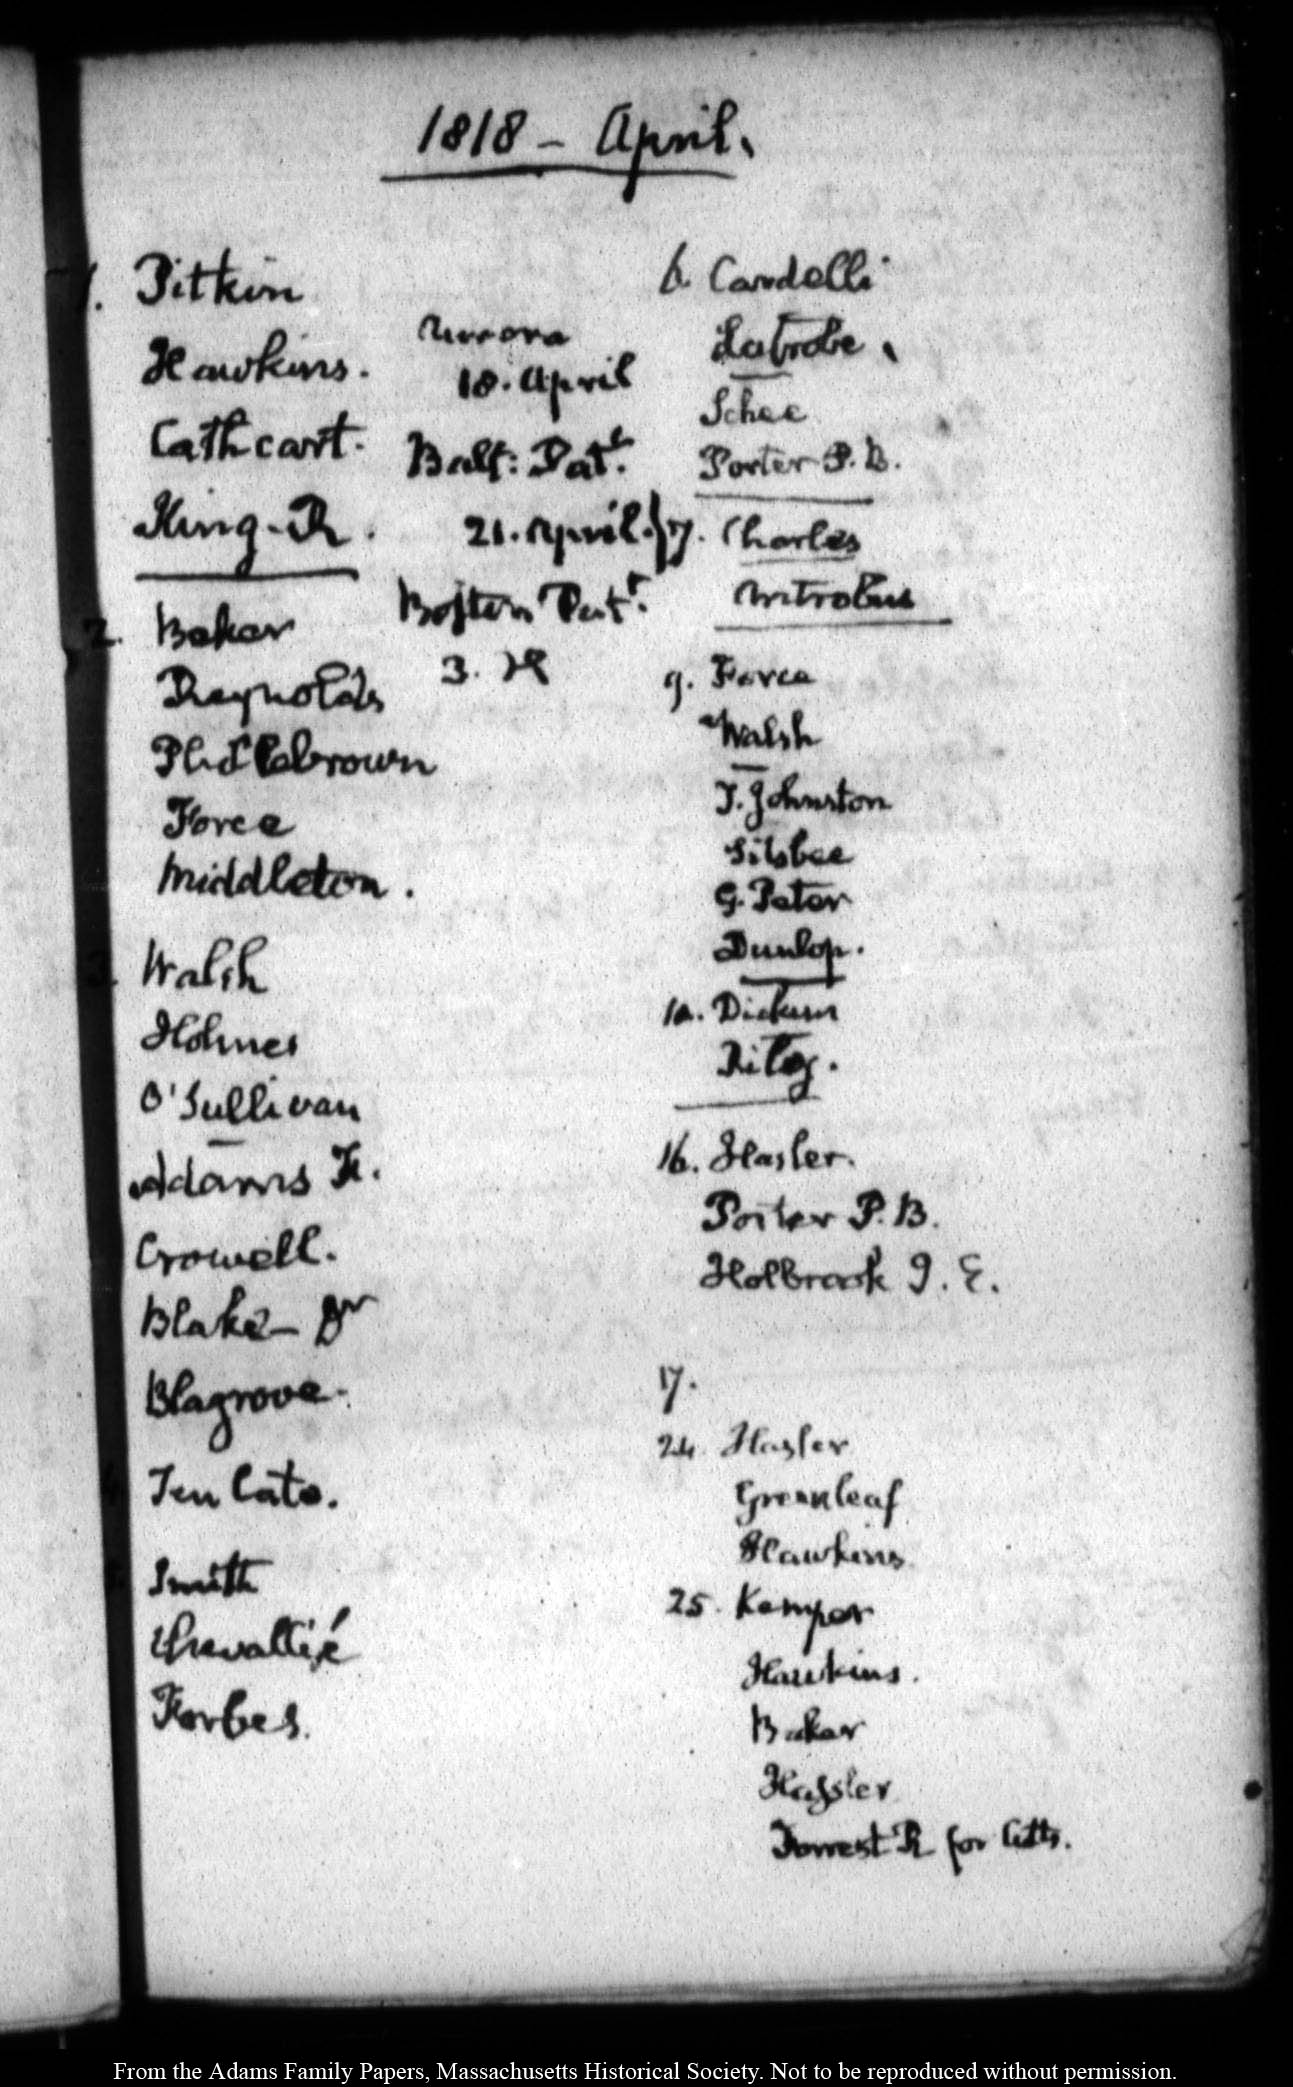 1818 - April.
1. Pitkin
Hawkins.
Cathcart.
King - R.
2. Baker
Reynolds
Force
Middleton.
3. Walsh
Holmes
O'Sullivan
Adams
Crowell.
Blake - Dr
Blagrove.
Ten Cate.
Smith
Chevallié
Forbes.
Aurora
18. April
Balt: Pat.t
21. April.
Boston Pat.t
3.
6. Cardelli
Latrobe.
Schee
Porter P. B.
7. Charles
Antrobus
9. Force
Walsh
J. Johnston
Silsbee
G. Peter
Dunlop.
10. Dickins
16. Hasler.
Porter P. B.
Holbrook J. E.
17.
24. Hasler
Greenleaf
Hawkins
25. Kemper
Hawkins.
Baker
Hassler
Forrest R for Cutts.
From the Adams Family Papers, Massachusetts Historical Society. Not to be reproduced without permission.